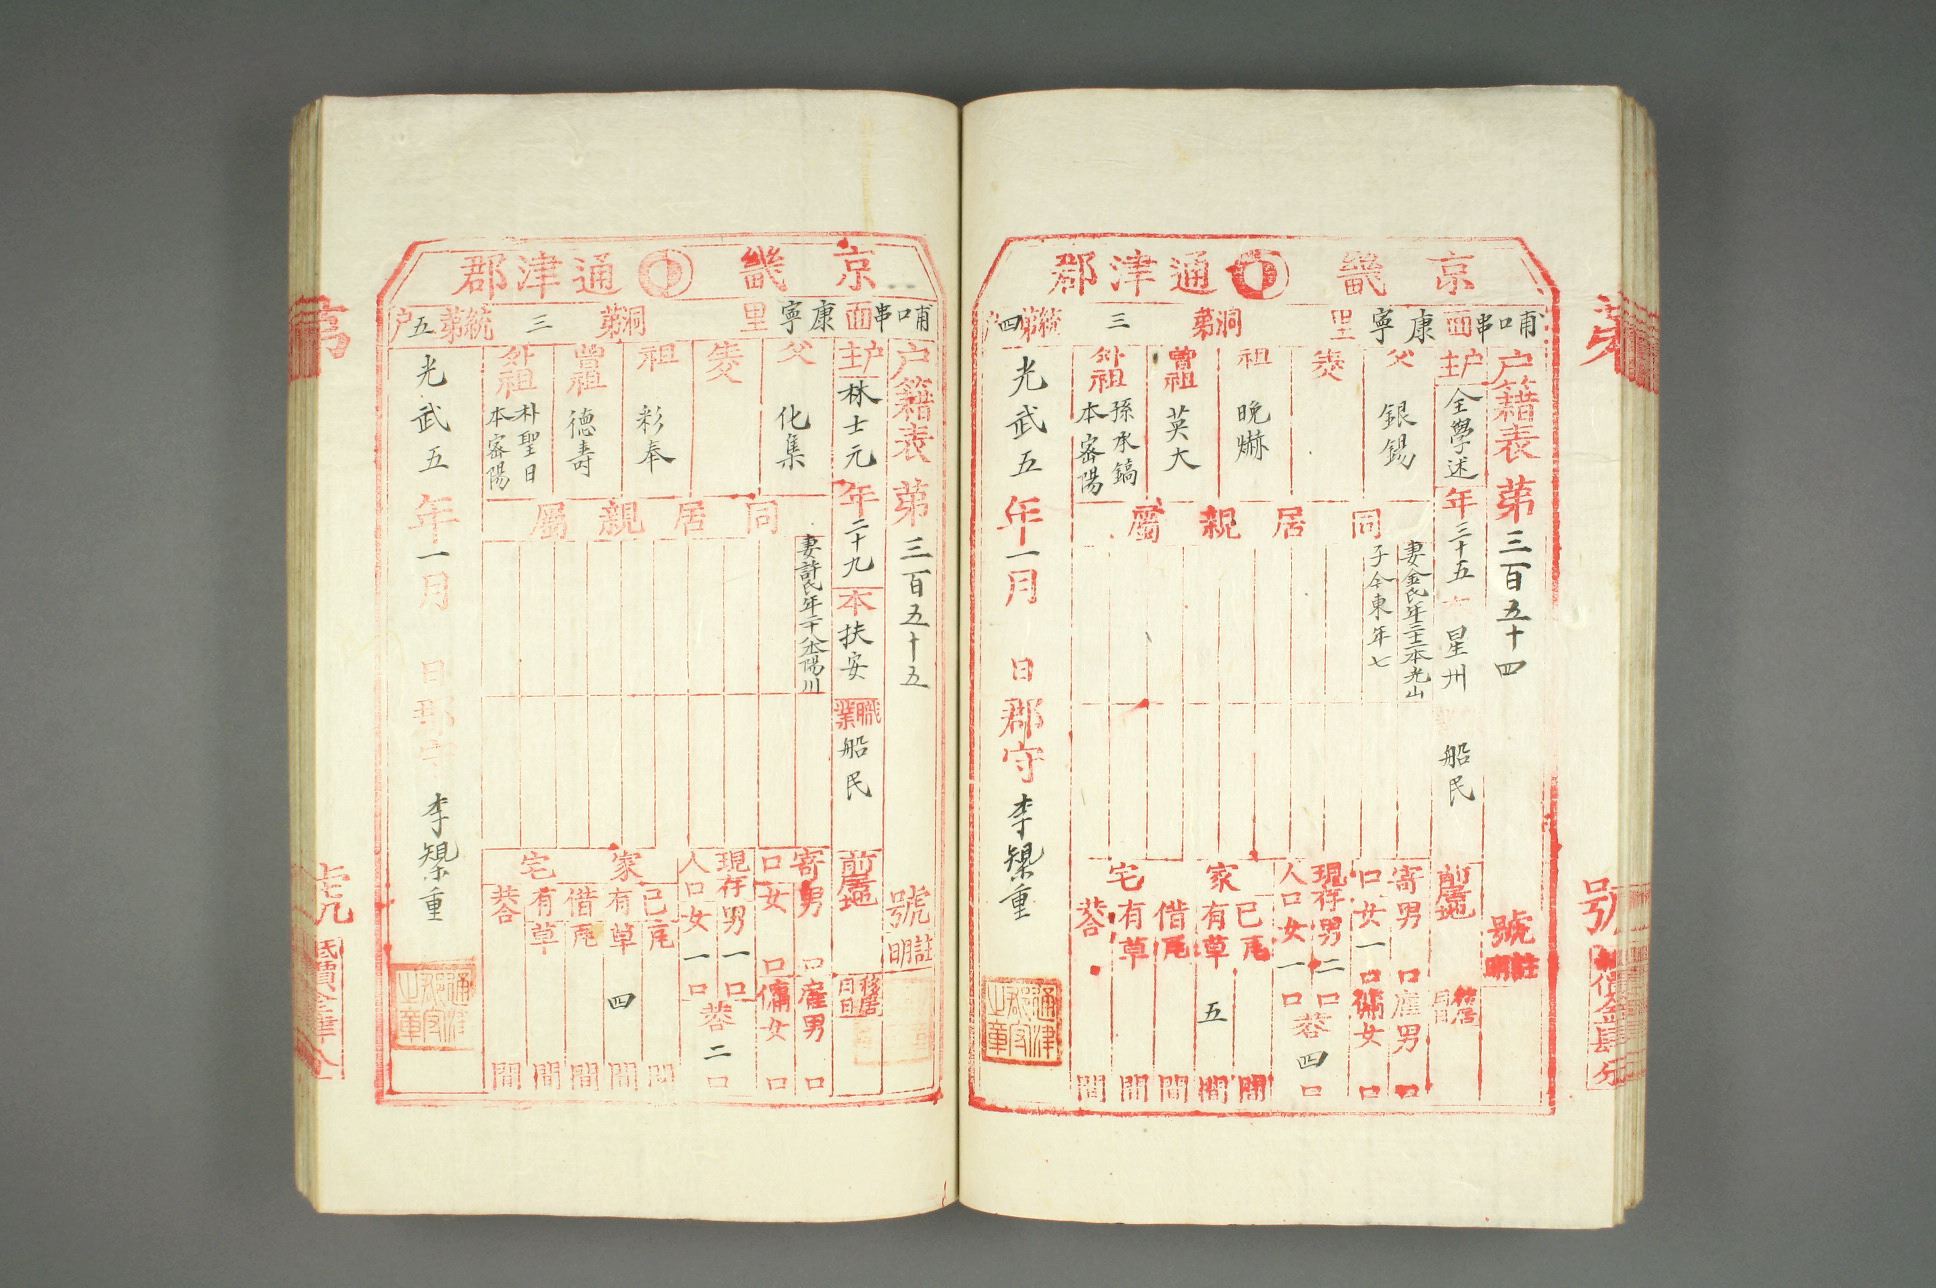 京畿 通津郡
哺口串面 康寧里 洞第三統第四戶
戶籍表 第三百五十四號
戶主 全學述 年三十五 本 星州 船民
父 銀錫
祖 晩爀
曾祖 英大
外祖 孫承鎬 本密陽
同居親屬
子 今東 年七
前居地
註明
寄口 男 口
女 一 口
雇男 口
傭女 口
現存人口 男 二 口
女 一 口
共 四 口
家宅
已有 瓦 間
草 五 間
借有 瓦 間
草 間
共合 間
光武五年一月 日 郡守 李
重
通津郡守之章
京畿 通津郡
哺口串面 康寧里 洞第三統第五戶
戶籍表 第三百五十五號
戶主 林士元 年二十九 本 扶安 職業 船民
父 化集
祖 彩奉
曾祖 德壽
外祖 朴聖日 本密陽
同居親屬
妻許氏年二十八本陽川
前居地
移居月日
註明
寄口 男 口
女 口
雇男 口
傭女 口
現存人口 男 一 口
女 一 口
共 二 口
家宅
已有 瓦 間
草 四 間
借有 瓦 間
草 間
共合 間
光武五年一月 日 郡守 李
重
通津郡守之章